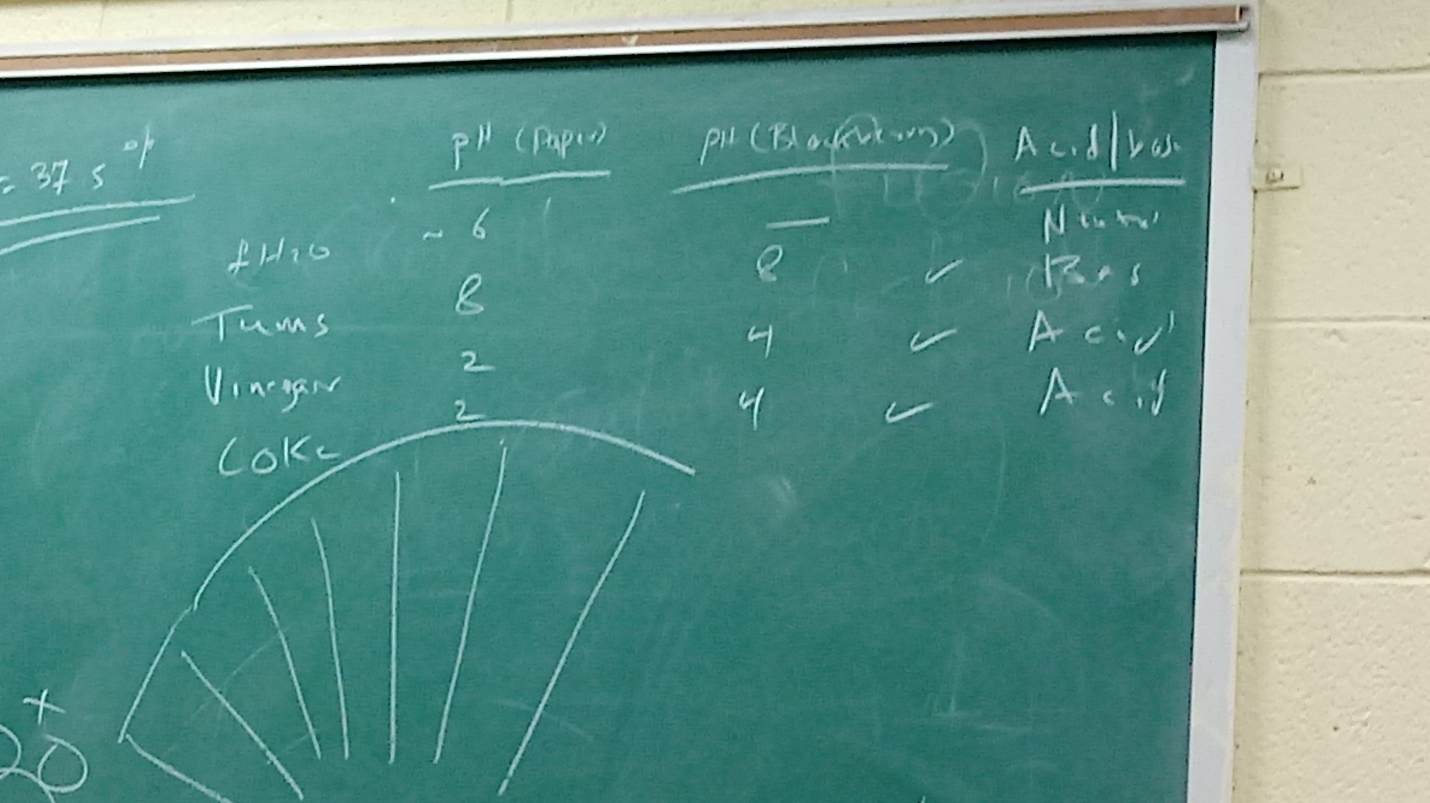 = 37 s
pH (Paper) pH (Blackberry) Acid/base
H2O ~ 6 — Neutral
Tums 8 8 ✓ Bas
Vinegar 2 4 ✓ Acid
Coke 2 4 ✓ Acid
+